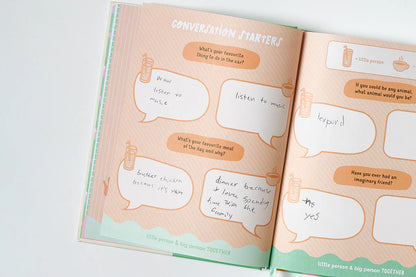 CONVERSATION STARTERS
What's your favourite
thing to do in the car?
listen to
music
listen to music
What's your favourite meal
of the day and why?
butter chicken
because it's yum
dinner because
I love spending
time with the
family
little person & big person TOGETHER
= little person
If you could be any animal,
what animal would you be?
lepurd
Have you ever had an
imaginary friend?
yes
little person & big person TOGETHER